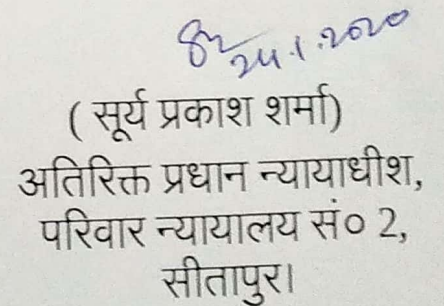 24.1.2020
( सूर्य प्रकाश शर्मा)
अतिरिक्त प्रधान न्यायाधीश,
परिवार न्यायालय सं० 2,
सीतापुर।